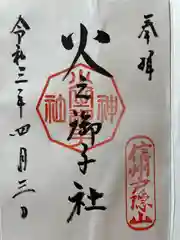 奉拝
火之御子社
令和三年四月三日
信州戸隠山